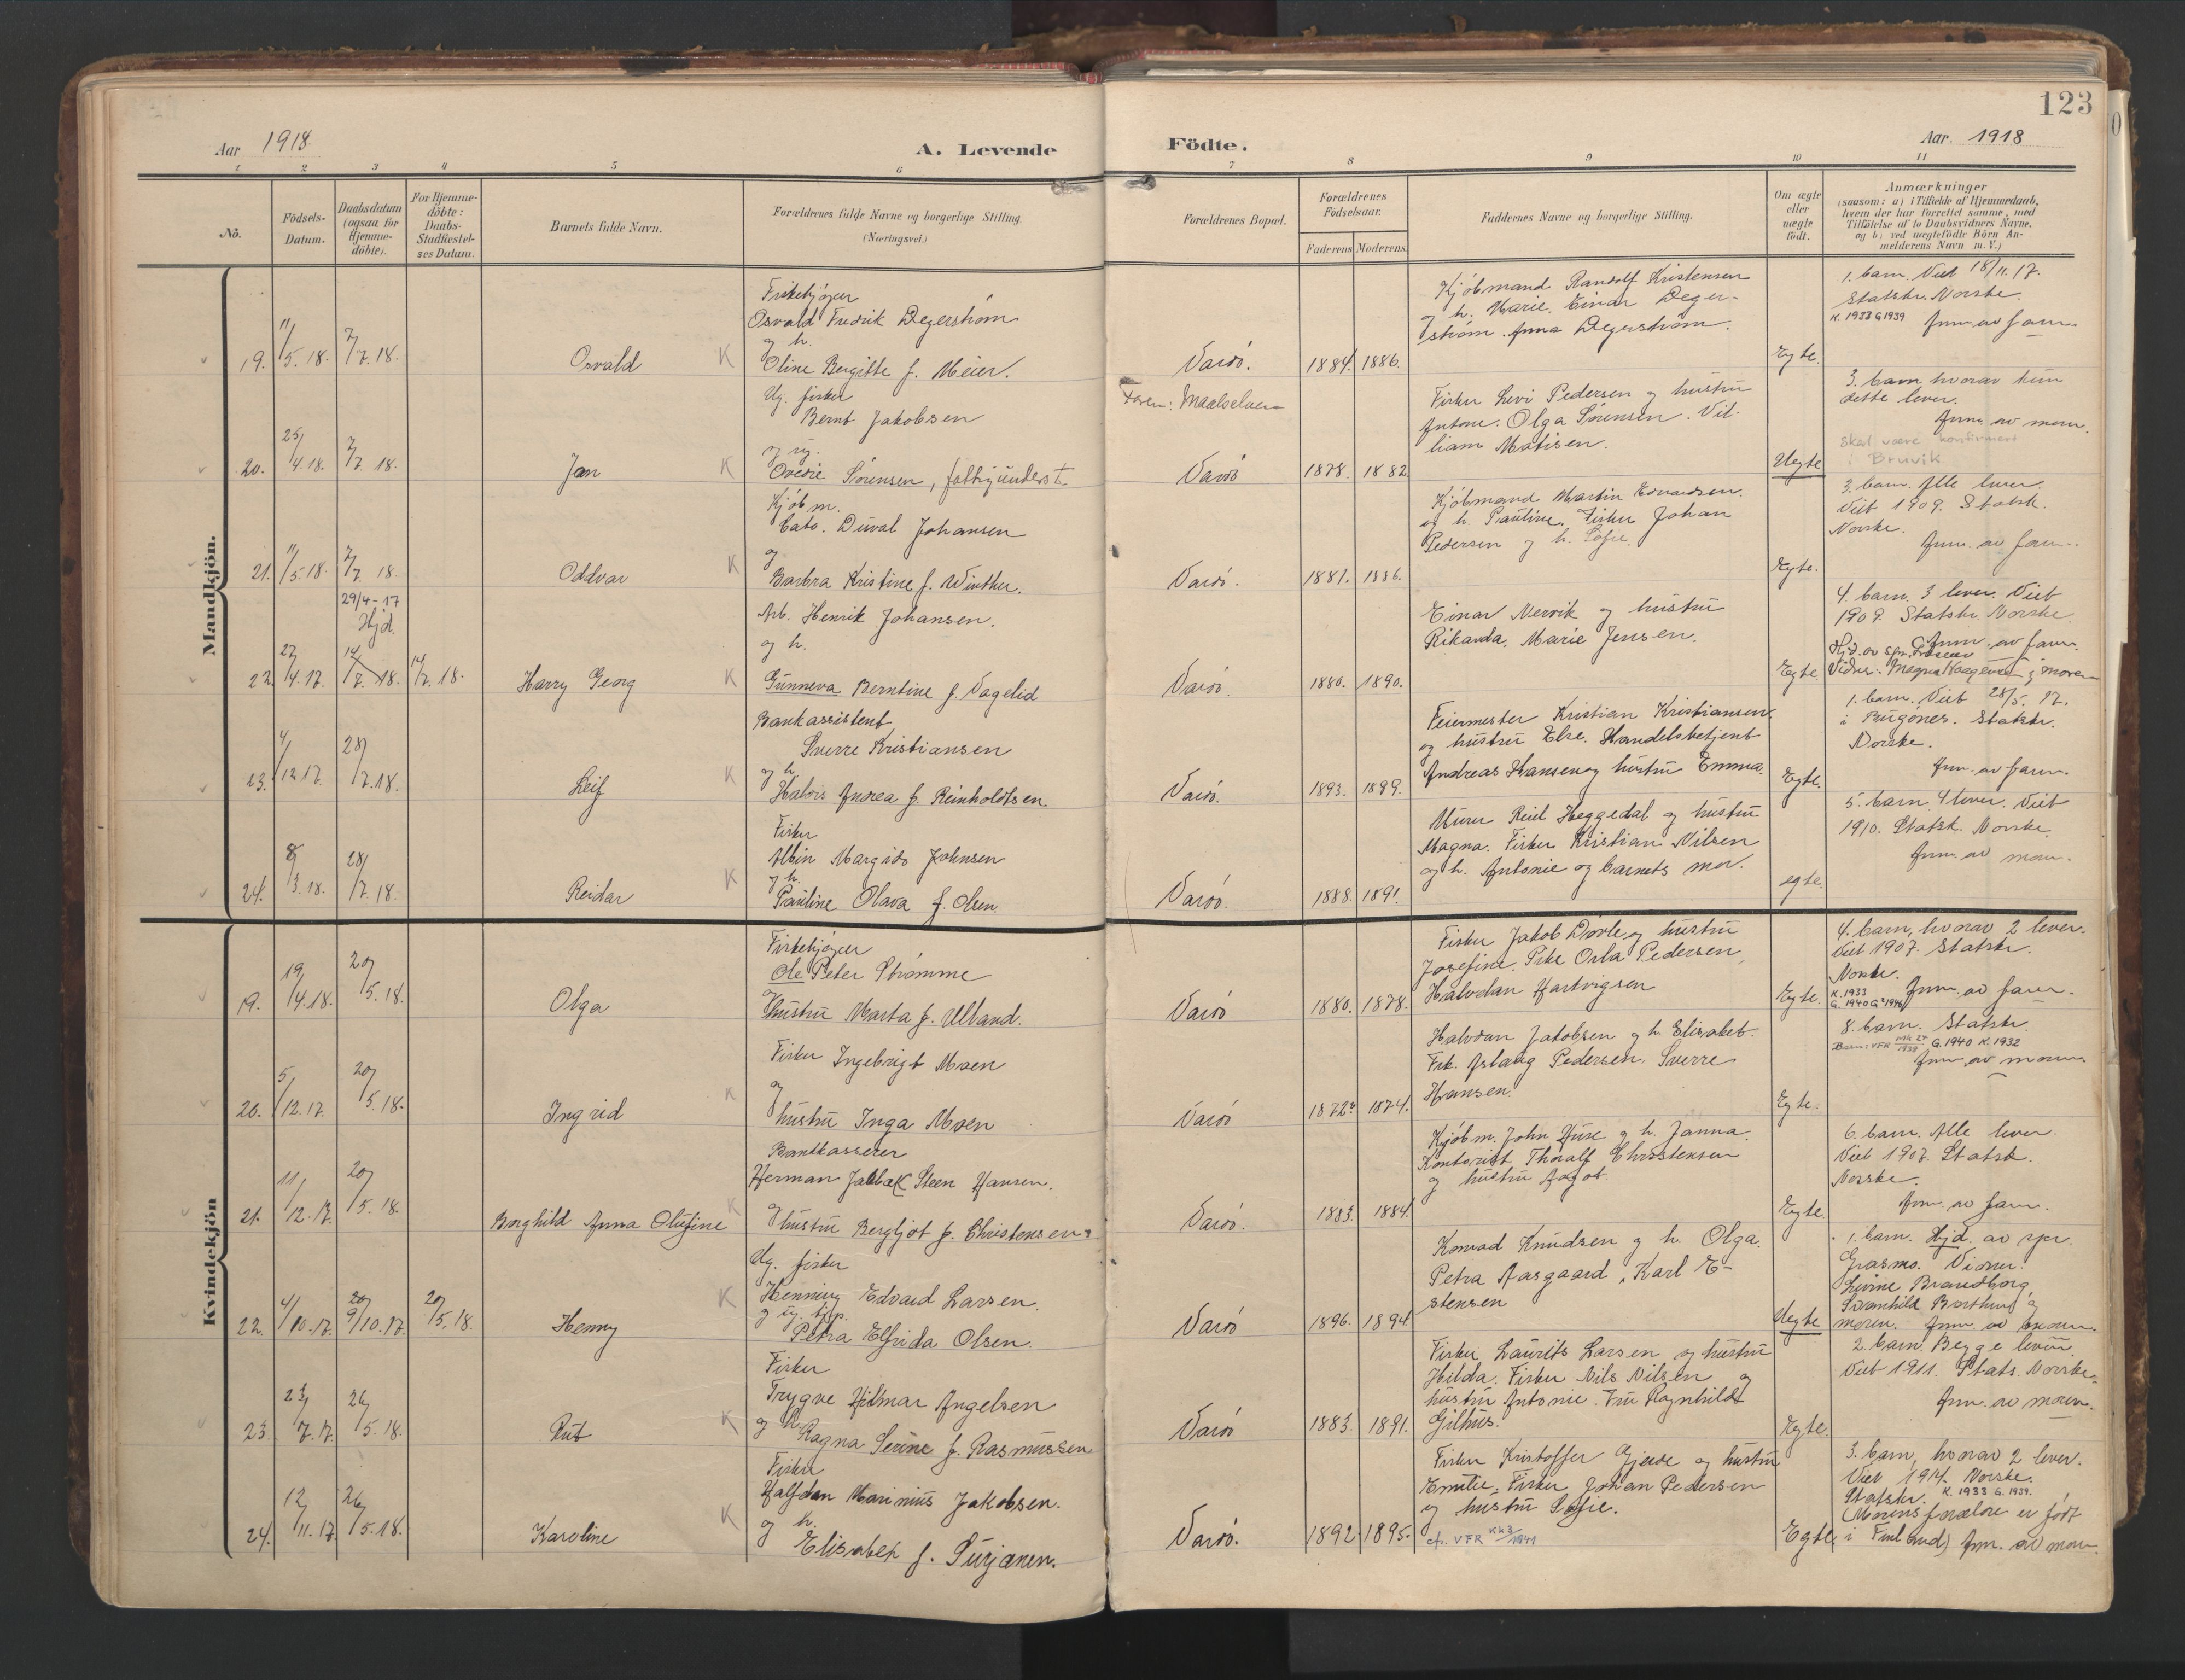 123
Aar 1918.
A. Levende Födte.
Aar. 1918
1 2 3 4 5 6 7 8 9 10 11
No.
Födsels-Datum.
Daabsdatum (ogsaa for Hjemme-döbte).
For Hjemme-döbte: Daabs-Stadfæstel-ses Datum.
Barnets fulde Navn.
Forældrenes fulde Navne og borgerlige Stilling
(Næringsvei.)
Forældrenes Bopæl.
Forældrenes Födselsaar.
Faderens Moderens
Faddernes Navne og borgerlige Stilling.
Om ægte eller uægte födt.
Anmærkninger
(saasom: a) i Tilfælde af Hjemmedaab,
hvem der har forrettet samme, med
Tilföielse af to Daabsvidners Navne.
og b) ved uægtefödte Börn An-
melderens Navn m. V.)
Mandkjön.
19. 11/5. 18. 7/7. 18. Osvald K
Fiskekjøper
Osvald Fredrik Degerstrøm
og h.
Oline Bergitte f. Meier.
Vardö. 1884. 1886.
Kjöbmand Randolf Kristensen
og h. Marie. Einar Deger-
ström. Anna Degerström.
Egte.
1. barn. Viet 18/11. 17.
Statskr. Norske.
K. 1933 G 1939 Anm. av faren.
20. 25/4. 18. 7/7. 18. Jan K
Ug. fisker
Bernt Jakobsen
og ug.
Ovedie Sørensen, fattigunderst.
Faren: Maalselven
Vardö 1878. 1882
Fisker Levi Pedersen og hustru
Antone. Olga Sørensen. Vil-
liam Matisen.
Uegte
3. barn, hvorav kun
dette lever.
Anm. av moren.
Skal være konfirmert
i Bruvik
21. 11/5. 18. 7/7. 18. Oddvar K
Kjöbm.
Cato. Duval Johansen
og
Barbra Kristine f. Winther.
Vardö. 1881. 1886.
Kjöbmand Martin Edvardsen.
og h. Pauline. Fisker Johan
Pedersen og h. Sofie.
Egte.
3. barn. Alle lever.
Viet 1909. Statsk.
Norske.
Anm. av faren.
22. 27/4. 17. 29/4-17 Hjd. 14/7. 18. 14/7. 18. Harry Georg K
Arb. Henrik Johansen.
og h.
Gunneva Berntine f. Vagelid
Vardö. 1880. 1890.
Einar Mervik og hustru
Rikarda. Marie Jensen.
Egte
4. barn. 3 lever. Viet
1909. Statskr. Norske.
Anm. av faren.
Hjd. av spr.
Vidner: Magna Haagensen og moren
23. 4/12 17. 28/7. 18. Leif K
Bankassistent
Sverre Kristiansen
og h.
Halvis Andrea f. Reinholdtsen
Vardö. 1893. 1899.
Feiermester Kristian Kristiansen
og hustru Else. Handelsbetjent
Andreas Hansen og hustru Emma.
Egte.
1. barn. Viet 28/5. 17.
i Bugönes. Statskr.
Norske.
Anm. av faren.
24. 8/3. 18. 28/7. 18. Reidar K
Fisker
Albin Margido Johnsen
og h.
Pauline Olava f. Olsen.
Vardö. 1888. 1891.
Murer Reiel Heggedal og hustru
Magna. Fisker Kristian Nilsen
og h. Antonie og barnets mor.
egte.
5. barn. 4 lever. Viet
1910. Statsk. Norske
Anm. av moren.
Kvindekjön
19. 19/4. 18. 20/5. 18. Olga
Fiskekjøper
Ole Peter Strømme
og
hustru Marta f. Ulland.
Vardö 1880. 1878.
Fisker Jakob Dørle og hustru
Josefine. Pike Orla Pedersen,
Halvdan Hartvigsen
Egte.
4. barn, hvorav 2 lever.
Viet 1907. Statskr.
Norske.
K. 1933 Anm. av faren.
G. 1940 G. 1946
20. 5/12. 17. 20/5. 18. Ingrid K
Fisker Ingebrigt Moen
og
hustru Inga Moen
Vardö 1872. 1874.
Halvdan Jakobsen og h. Elisabet.
Frk. Aslaug Pedersen. Sverre
Hansen.
Egte.
8. barn. Statskr.
G. 1940 K. 1932
Anm. av moren.
21. 11/12. 17. 20/5. 18. Borghild Anna Olufine K
Bankkasserer
Herman Jalbæk Steen Hansen.
og
hustru Bergljot f. Christensen.
Vardö. 1883. 1884.
Kjöbm. John Huse og h. Janna.
Kontorist Thoralf Christensen
og hustru Aagot.
Egte.
6. barn. Alle lever.
Viet 1907. Statsk.
Norske.
Anm. av faren.
22. 4/10. 17. 9/10. 17. 20/5. 18. Henny K
Ug. fisker
Henning Edvard Larsen.
og ug. tjp.
Petra Elfrida Olsen.
Vardö 1896. 1894
Konrad Knudsen og h. Olga.
Petra Aasgaard, Karl E-
stensen
Uegte
1. barn. Hjd. av spr.
Grasmo. Vidner:
Lovine Brandborg,
Svanhild Barthen og
moren. Anm. av moren.
23. 23/7. 17. 26/5. 18. Rut K
Fisker
Trygve Hilmar Angelsen
og h.
Ragna Serine f. Rasmussen
Vardö 1883. 1891.
Fisker Laurits Larsen og hustru
Hilda. Fisker Nils Nilsen og
hustru Antonie. Fru Ragnhild
Gilhus.
Egte.
2. barn. Begge lever.
Viet 1911. Stats. Norske.
Anm. av moren.
24. 12/11. 17 26/5. 18. Karoline K
Fisker
Halfdan Marinius Jakobsen.
og h.
Elisabet f. Surjanen.
Vardö. 1892 1895.
Fisker Kristoffer Gjerde og hustru
Emilie. Fisker Johan Pedersen
og hustru Sofie.
cfr. VFR
Egte
3. barn, hvorav 2 lever.
Viet 1914. Norske.
Statskr. K. 1933 G. 1939.
(Morens forældre er født
i Finland) Anm. av moren.